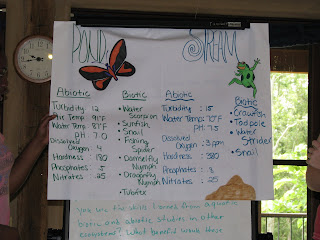 POND
STREAM
Abiotic
Turbidity 12
Air Temp. 91°F
Water Temp. 87°F
pH 7.0
Dissolved
Oxygen 4
Hardness 180
Phosphates 5
Nitrates .25
Biotic
• Water
Scorpion
• Sunfish
• Snail
• Fishing
Spider
• Damselfly
Nymph
• Dragonfly
Nymph
• Tubifex
Abiotic
Turbidity : 15
Water Temp.
pH 7.5
Dissolved
Oxygen : 3 ppm
Hardness : 380
Phosphates : 8
Nitrates : .25
Biotic
• Crawfish
• Tadpole
• Water
Strider
• Snail
from aquatic
biotic and abiotic studies in other
ecosystems? What benefit would these